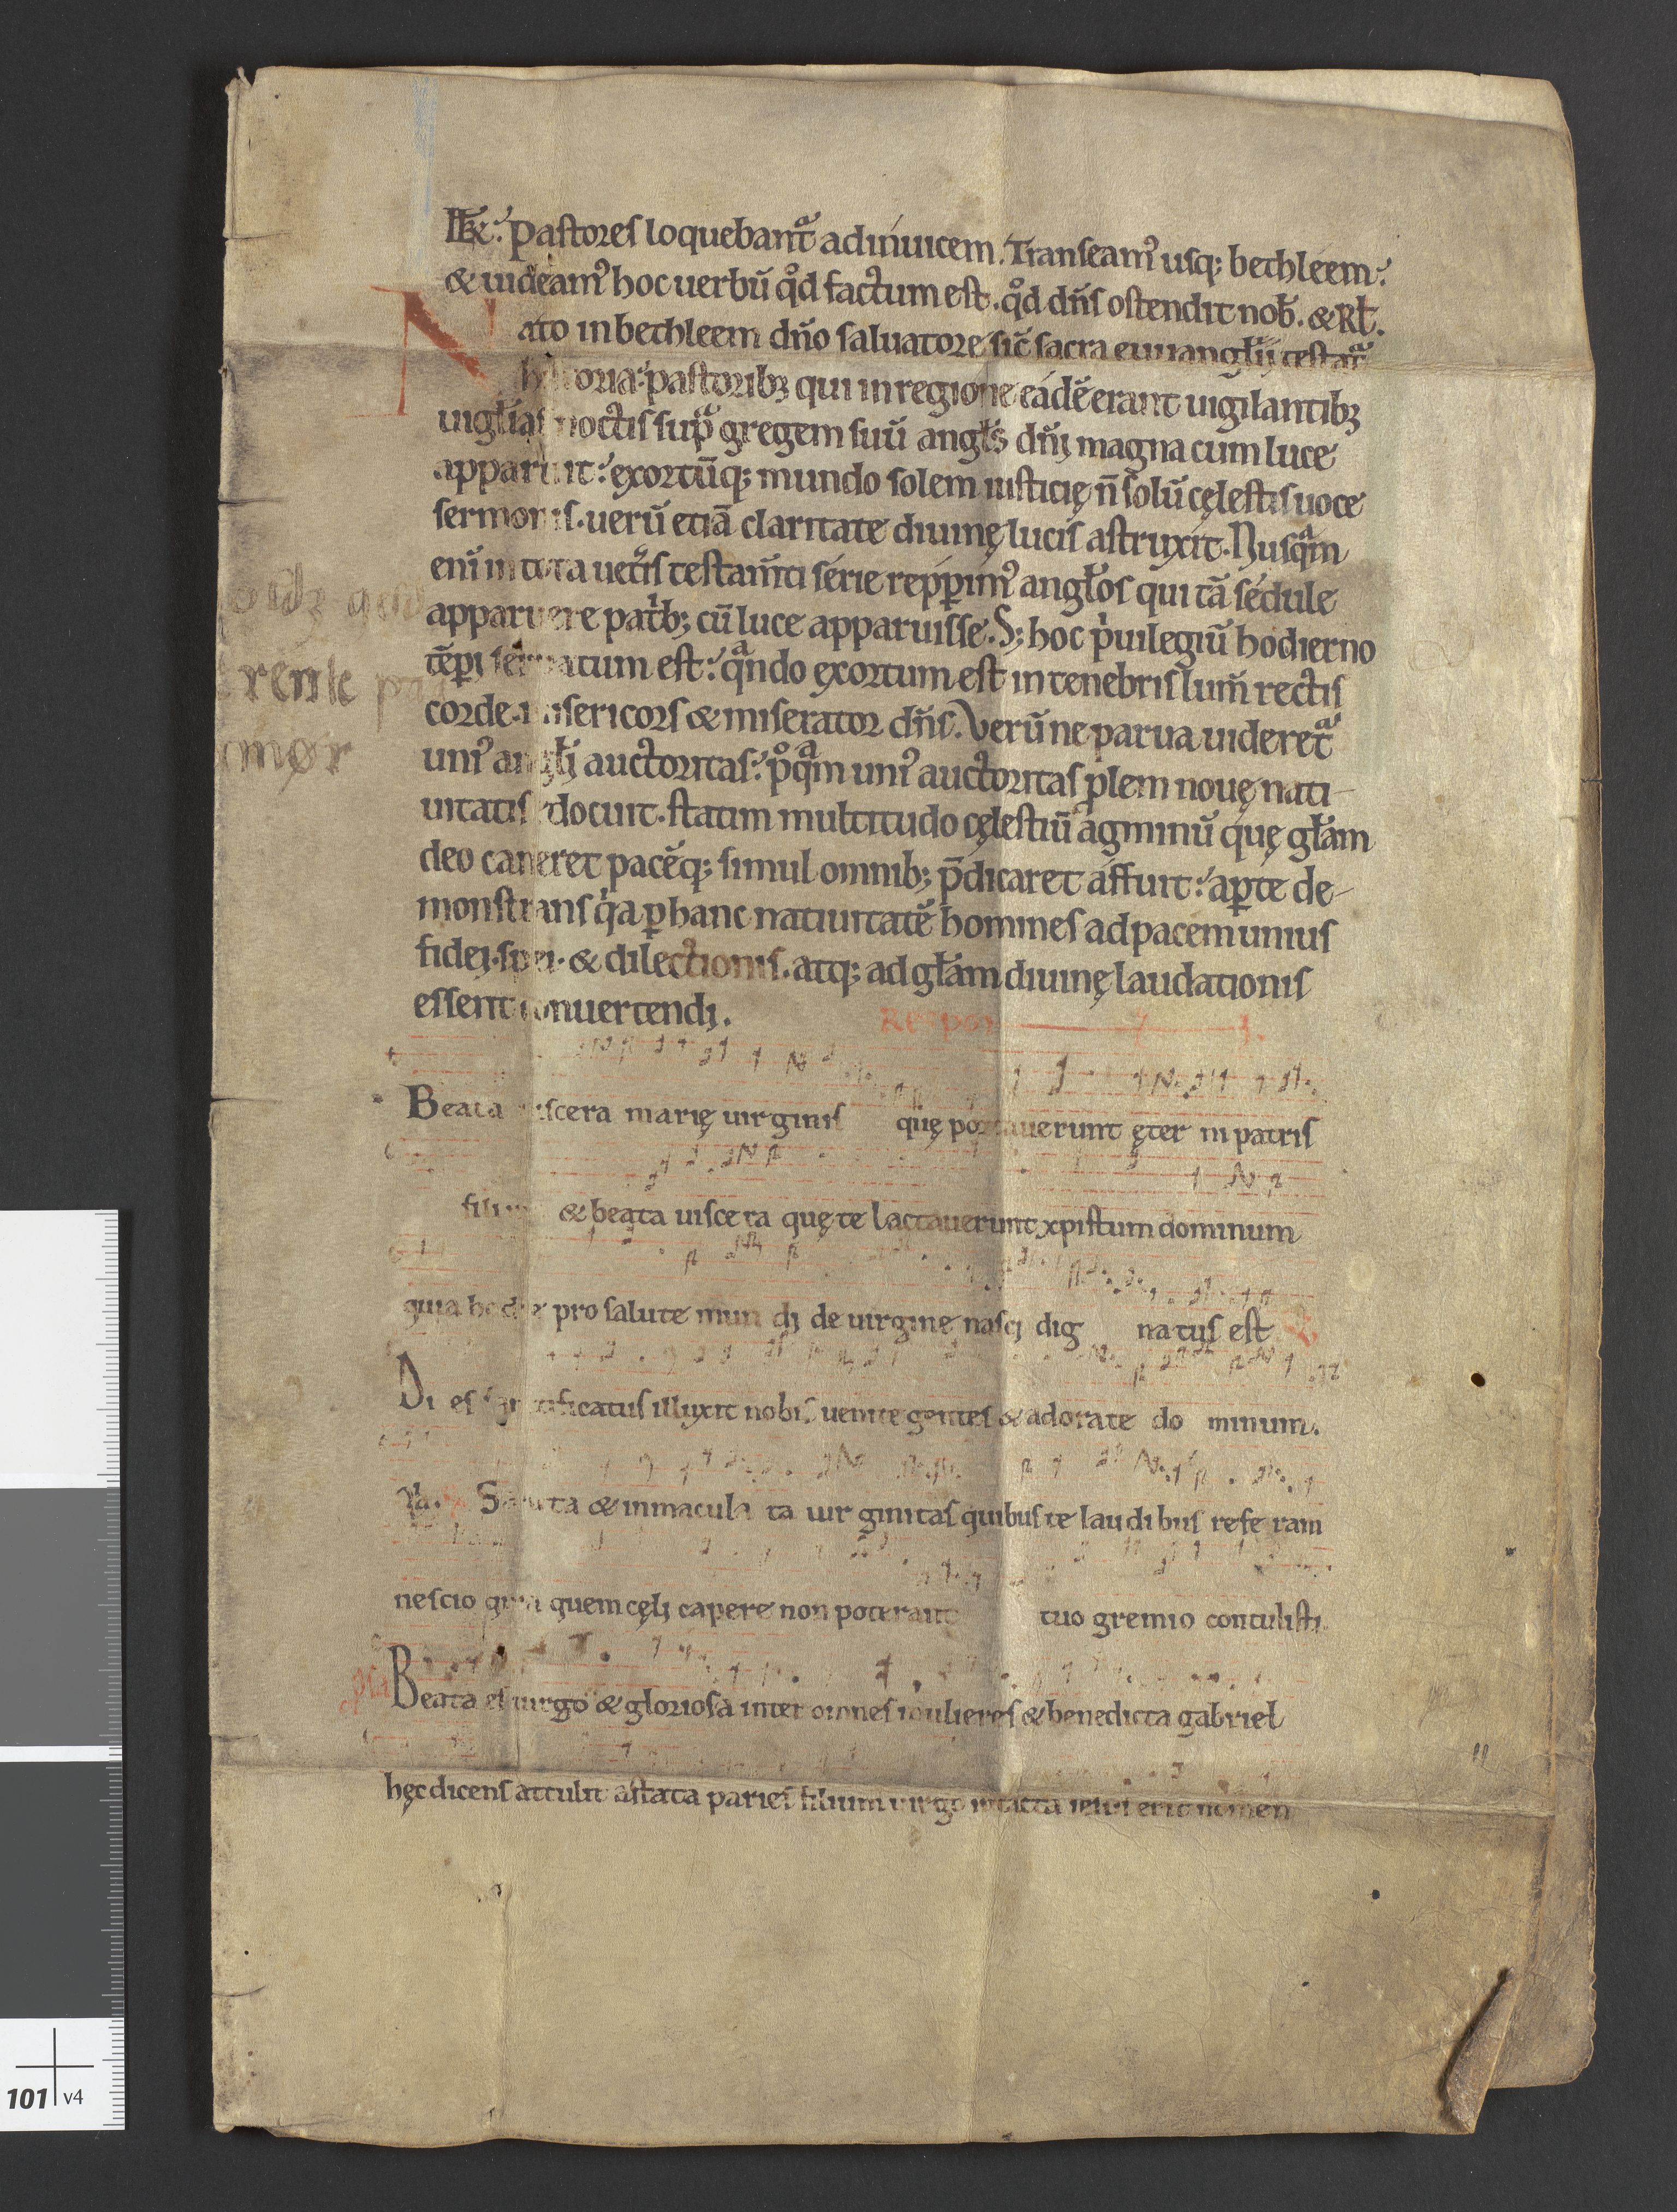 Pastores loquebant᷑ adinuicem. Transeam᷒ usq; bethleem.
& uideam᷒ hoc uerbū qͦd factum est. qͦd dn̄s ostendit nob̄. & Rl̄.
Nato in bethleem dn̄o saluatore sic̄ sacra euuanglӯ testat᷑
historia. pastorib; qui in regione eádē erant uigilantib;
uigl̄ias noctis sup᷑ gregem suū angl̄s dn̄i magna cum luce
apparuit. exortūq; mundo solem iusticię n̄ solū cęlestis uoce
sermonis. uerū etiā claritate diuinę lucis astruxit. Nusqᷓm
enī in tota uet᷑is testam̄ti série repꝑim᷒ angl̄os qui tā sédule
apparuere patⁱb; cū luce apparuisse. S; hoc pⁱuilegiū hodierno
tēpi seruatum est. qᷓndo exortum est in tenebris lum̄ rectis
corde. misericors & miserator dn̄s. Verū ne parua uideret᷑
uni᷒ angl̄i auctoritas. pͦqᷓm uni᷒ auctoritas p̄lem nouę nati-
uitatis edocuit. statim multitudo cęlestiū agminū quę gl̄am
deo caneret pacēq; simul omnib; p̄dicaret áffuit. aꝑte de-
monstrans qⁱa ꝑ hanc natiuitatē homines ad pacem unius
fidei. spei. & dilectionis. atq; ad gl̄am diuinę laudationis
essent conuertendi.
Beata uiscera marię uirginis quę portauerunt ęter ni patris
filium & beata uisce ra quę te lactauerunt xpistum dominum
quia hodie pro salute mun di de uirgine nasci dig natus est
Di es sanctificatus illuxit nobis uenite gentes & adorate do minum.
Sancta & inmacula ta uir ginitas quibus te laudi bus refe ram
nescio quia quem cęli capere non poterant tuo gremio contulisti
Beata es uirgo & gloriosa inter omnes mulieres & benedicta gabriel
hęc dicens attulit astata paries filium uirgo intacta iesus erit nomen
101 v4